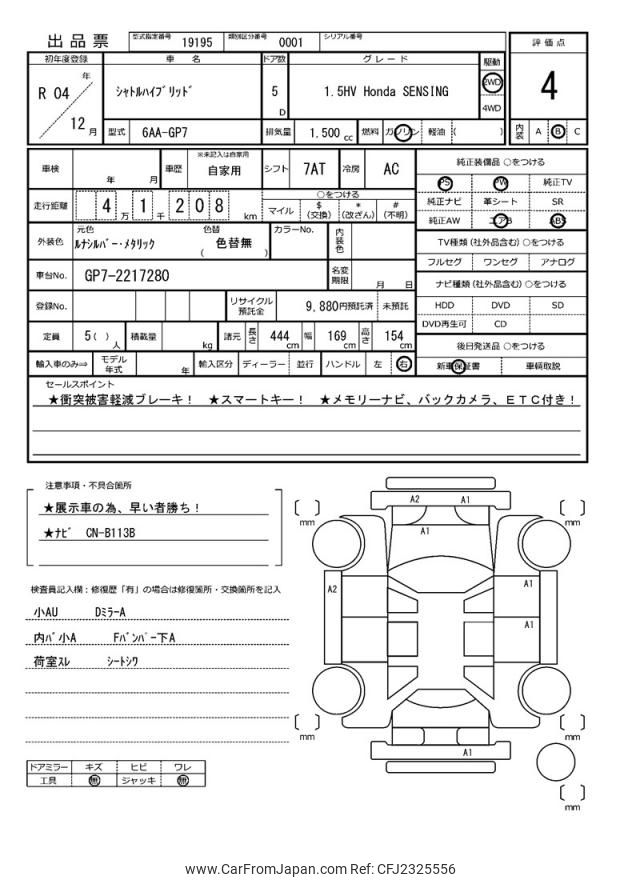 出品票 型式指定番号 19195 類別区分番号 0001 シリアル番号
評価点
4
内装 A B C
初年度登録 車名 ドア数 グレード 駆動
R 04 年 12 月 シャトルハイブリッド 5 D 1.5HV Honda SENSING 2WD 4WD
型式 6AA-GP7 排気量 1.500 cc 燃料 ガソリン 軽油 ( )
車検 年 月 車歴 ※未記入は自家用 自家用 シフト 7AT 冷房 AC
走行距離 4 万 1 千 2 0 8 km
○をつける
マイル $(交換) *(改ざん) #(不明)
外装色 元色 ルナシルバー・メタリック 色替 ( 色替無 ) カラーNo. 内装色
車台No. GP7-2217280 名変期限 月 日
登録No. リサイクル預託金 9,880円預託済 未預託
定員 5( ) 人 積載量 kg 諸元 長さ 444 cm 幅 169 cm 高さ 154 cm
輸入車のみ⇒ モデル年式 年 輸入区分 ディーラー 並行 ハンドル 左 右
純正装備品 ○をつける
PS PW 純正TV
純正ナビ 革シート SR
純正AW エアB ABS
TV種類(社外品含む)○をつける
フルセグ ワンセグ アナログ
ナビ種類(社外品含む)○をつける
HDD DVD SD
DVD再生可 CD
後日発送品 ○をつける
新車保証書 車輌取説
セールスポイント
★衝突被害軽減ブレーキ! ★スマートキー! ★メモリーナビ、バックカメラ、ETC付き!
注意事項・不具合箇所
★展示車の為、早い者勝ち!
★ナビ CN-B113B
検査員記入欄:修復歴「有」の場合は修復箇所・交換箇所を記入
小AU DミラーA
内バ小A Fバンパー下A
荷室スレ シートシワ
ドアミラー キズ ヒビ ワレ
工具 無 ジャッキ 無
A2 A1
mm mm
A1
A2 A1
A1
mm mm
A1
mm
www.CarFromJapan.com Ref: CFJ2325556